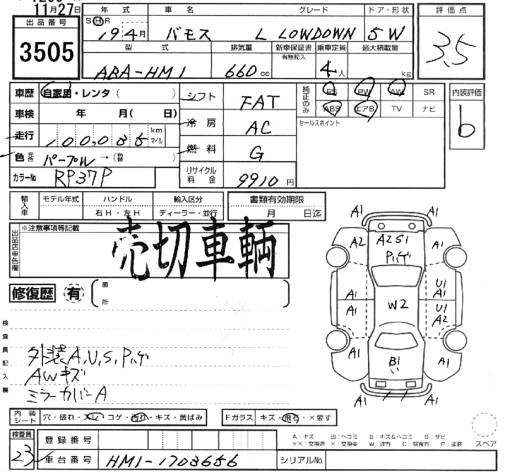 11月27日
出品番号
3505
年式 車名 グレード ドア・形状
S H R 19年4月 バモス L LOWDOWN 5W
型式 排気量 新車保証書 有無記入 乗車定員 最大積載量
ABA-HM1 660cc 4人 kg
評価点
3.5
車歴 自家用・レンタ( )
車検 年 月( )
走行 100,085 km マイル
色 パープル→
カラーNo RP37P
シフト FAT
冷房 AC
燃料 G
リサイクル料金 9910円
純正のみ PS PW AW SR
ABS エアB TV ナビ
セールスポイント
内装評価
b
輸入車 モデル年式 ハンドル 右H・左H 輸入区分 ディーラー・並行
書類有効期限 月 日迄
出品店申告欄
※注意事項等記載
売切車輌
修復歴 有 箇所
検査員記入欄
外装A,U,S,P,ハゲ
AWキズ
ミラーカバーA
A1 A1 A1
A2 A2S1 Pハゲ A1
A1 W2 U1
A1 U1
A1 A2
B1
A1 A1
内装シート 穴・破れ・スレ・コゲ・汚れ・キズ・黄ばみ
Fガラス キズ・飛石・×要す
A:キズ U:ヘコミ B:キズ&ヘコミ S:サビ
X:交換要 XX:交換済 W:波有 C:腐食有 P:塗装
スペア
検査員
23
登録番号
車台番号 HM1-1703656
シリアルNo.